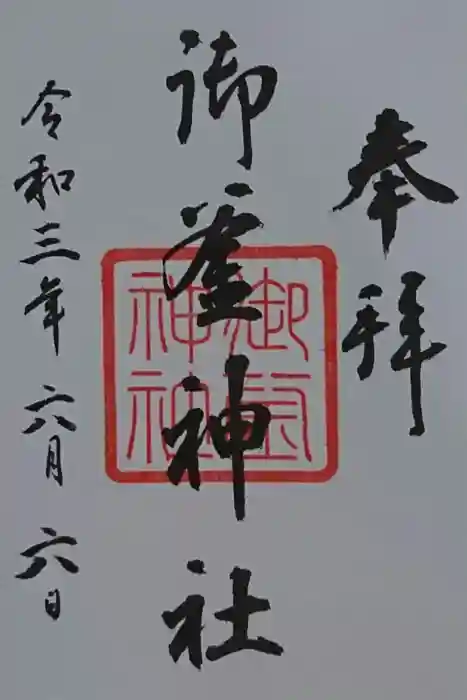 奉拝
御釜神社
御釜
神社
令和三年六月六日